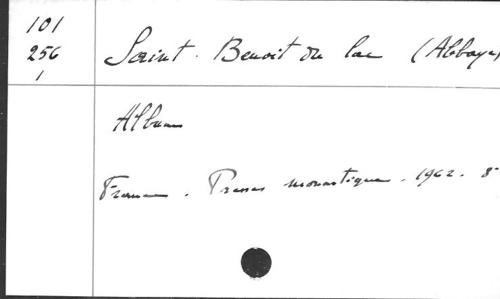 101
256
1
Saint-Benoit du lac (Abbaye)
Album
France. Presses monastiques. 1962. 8°